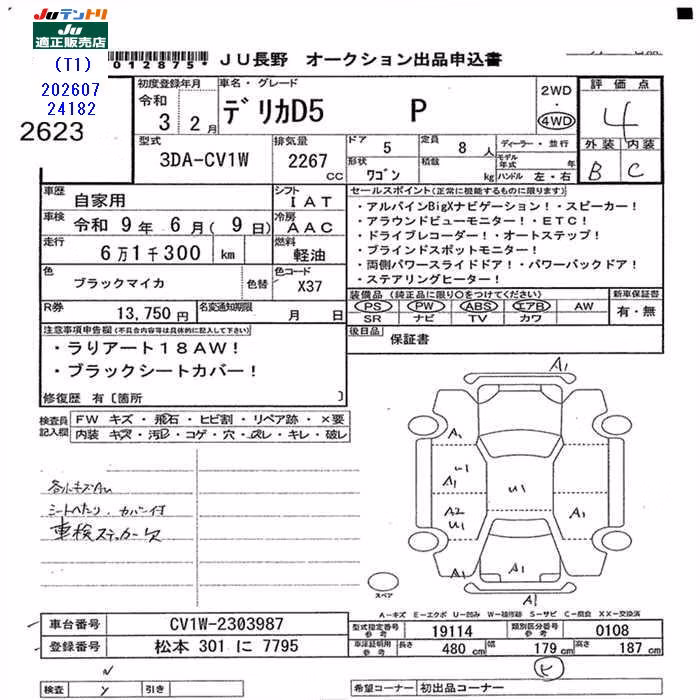 Juテントリ
Ju
適正販売店
(T1)
202607
24182
2623
*012875*
JU長野 オークション出品申込書
初度登録年月
令和
3 2月
車名・グレード
デリカD5 P
2WD
・
4WD
評価点
4
外装 内装
B C
型式
3DA-CV1W
排気量
2267
cc
ドア
5
定員
8人
形状
ワゴン
積載
kg
ディーラー・並行
モデル年式 年
ハンドル 左・右
車歴
自家用
シフト
IAT
車検
令和 9年 6月(9日)
冷房
AAC
走行
6万1千300 km
燃料
軽油
色
ブラックマイカ
色替
色コード
X37
R券
13,750円
名変通知期限
月 日
セールスポイント(正常に機能するものに限ります)
・アルパインBigXナビゲーション!・スピーカー!
・アラウンドビューモニター!・ETC!
・ドライブレコーダー!・オートステップ!
・ブラインドスポットモニター!
・両側パワースライドドア!・パワーバックドア!
・ステアリングヒーター!
装備品 (純正品に限り○をつけてください)
PS PW ABS エアB AW
SR ナビ TV カワ
新車保証書
有・無
後日品
保証書
注意事項申告欄(不具合内容等は具体的に記入して下さい)
・らりアート18AW!
・ブラックシートカバー!
修復歴 有〔箇所 〕
検査員
記入欄
FW キズ・飛石・ヒビ割・リペア跡・×要
内装 キズ・汚レ・コゲ・穴・スレ・キレ・破レ
シートへたり、カバー付
車検ステッカー欠
A1
A1
U1
A1
A2
U1
U1
A1
A1
A1
スペア
A-キズ E-エクボ U-凹み W-補修跡 S-サビ C-腐食 XX-交換済
車台番号
CV1W-2303987
登録番号
松本 301 に 7795
型式指定番号
参考
19114
類別区分番号
参考
0108
車庫証明用
参考
長さ 480 cm 幅 179 cm 高さ 187 cm
検査
引き
希望コーナー 初出品コーナー